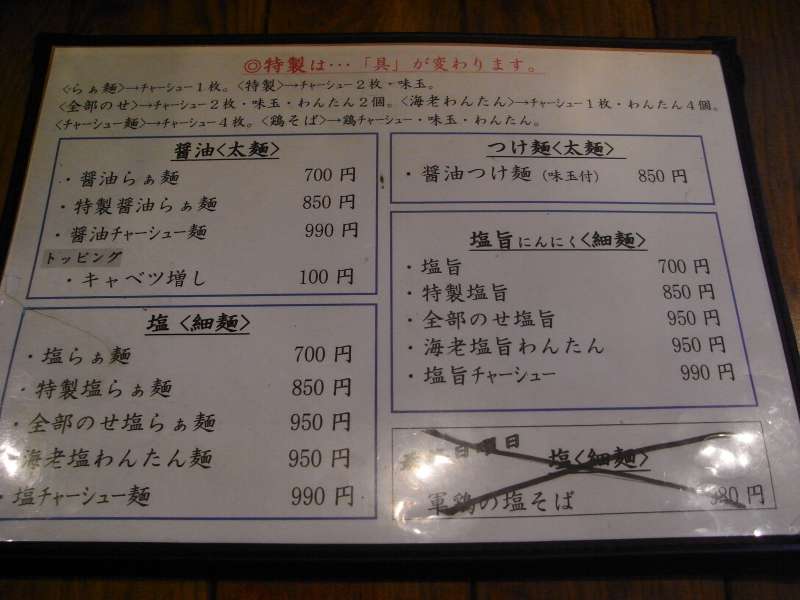 ◎特製は…「具」が変わります。
〈らぁ麺〉→チャーシュー１枚。〈特製〉→チャーシュー２枚・味玉。
〈全部のせ〉→チャーシュー２枚・味玉・わんたん２個。〈海老わんたん〉→チャーシュー１枚・わんたん４個。
〈チャーシュー麺〉→チャーシュー４枚。〈鶏そば〉→鶏チャーシュー・味玉・わんたん。
醤油〈太麺〉
・醤油らぁ麺 700 円
・特製醤油らぁ麺 850 円
・醤油チャーシュー麺 990 円
トッピング
・キャベツ増し 100 円
塩〈細麺〉
・塩らぁ麺 700 円
・特製塩らぁ麺 850 円
・全部のせ塩らぁ麺 950 円
・海老塩わんたん麺 950 円
・塩チャーシュー麺 990 円
つけ麺〈太麺〉
・醤油つけ麺（味玉付） 850 円
塩旨にんにく〈細麺〉
・塩旨 700 円
・特製塩旨 850 円
・全部のせ塩旨 950 円
・海老塩旨わんたん 950 円
・塩旨チャーシュー 990 円
日曜日
塩〈細麺〉
軍鶏の塩そば 円